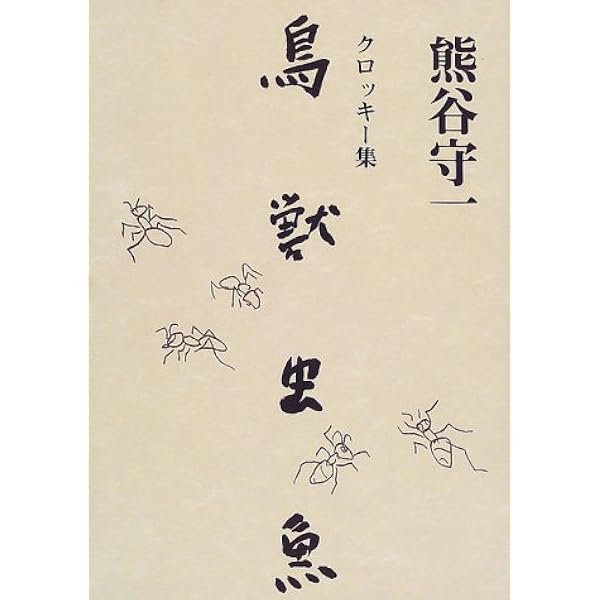 熊谷守一
クロッキー集
鳥獣虫魚